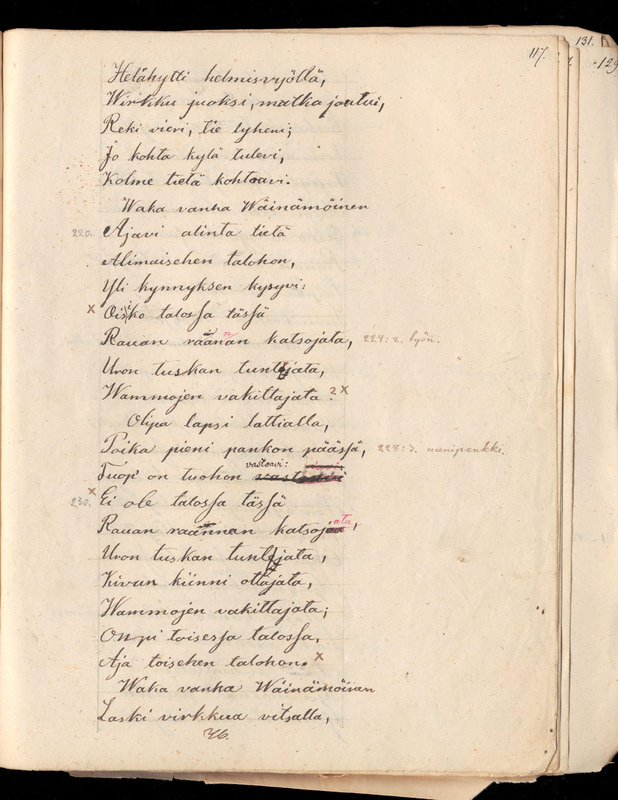 131.
129
117.
Helähytti helmisvyöllä,
Wirkku juoksi, matka joutui,
Reki vieri, tie lyheni;
Jo kohta kylä tulevi,
Kolme tietä kohtoavi.
Waka vanha Wäinämöinen
220. Ajavi alinta tietä
Alimaisehen talohon,
Yli kynnyksen kysyvi:
x Oisko talossa tässä
Rauan raannan katsojata, 224: 2. työn.
Uron tuskan tuntijata,
Wammojen vakittajata? x
Olipa lapsi lattialla,
Poika pieni pankon päässä, 228: 3. uunipenkki.
vastoavi:
Tuop' on tuohon
x
230. Ei ole talossa tässä
Rauan raannan katsojata,
Uron tuskan tuntijata,
Kivun kiinni ottajata,
Wammojen vakittajata;
On pi toisessa talossa,
Aja toisehen talohon. x
Waka vanha Wäinämöinen
Laski virkkua vitsalla,
76.